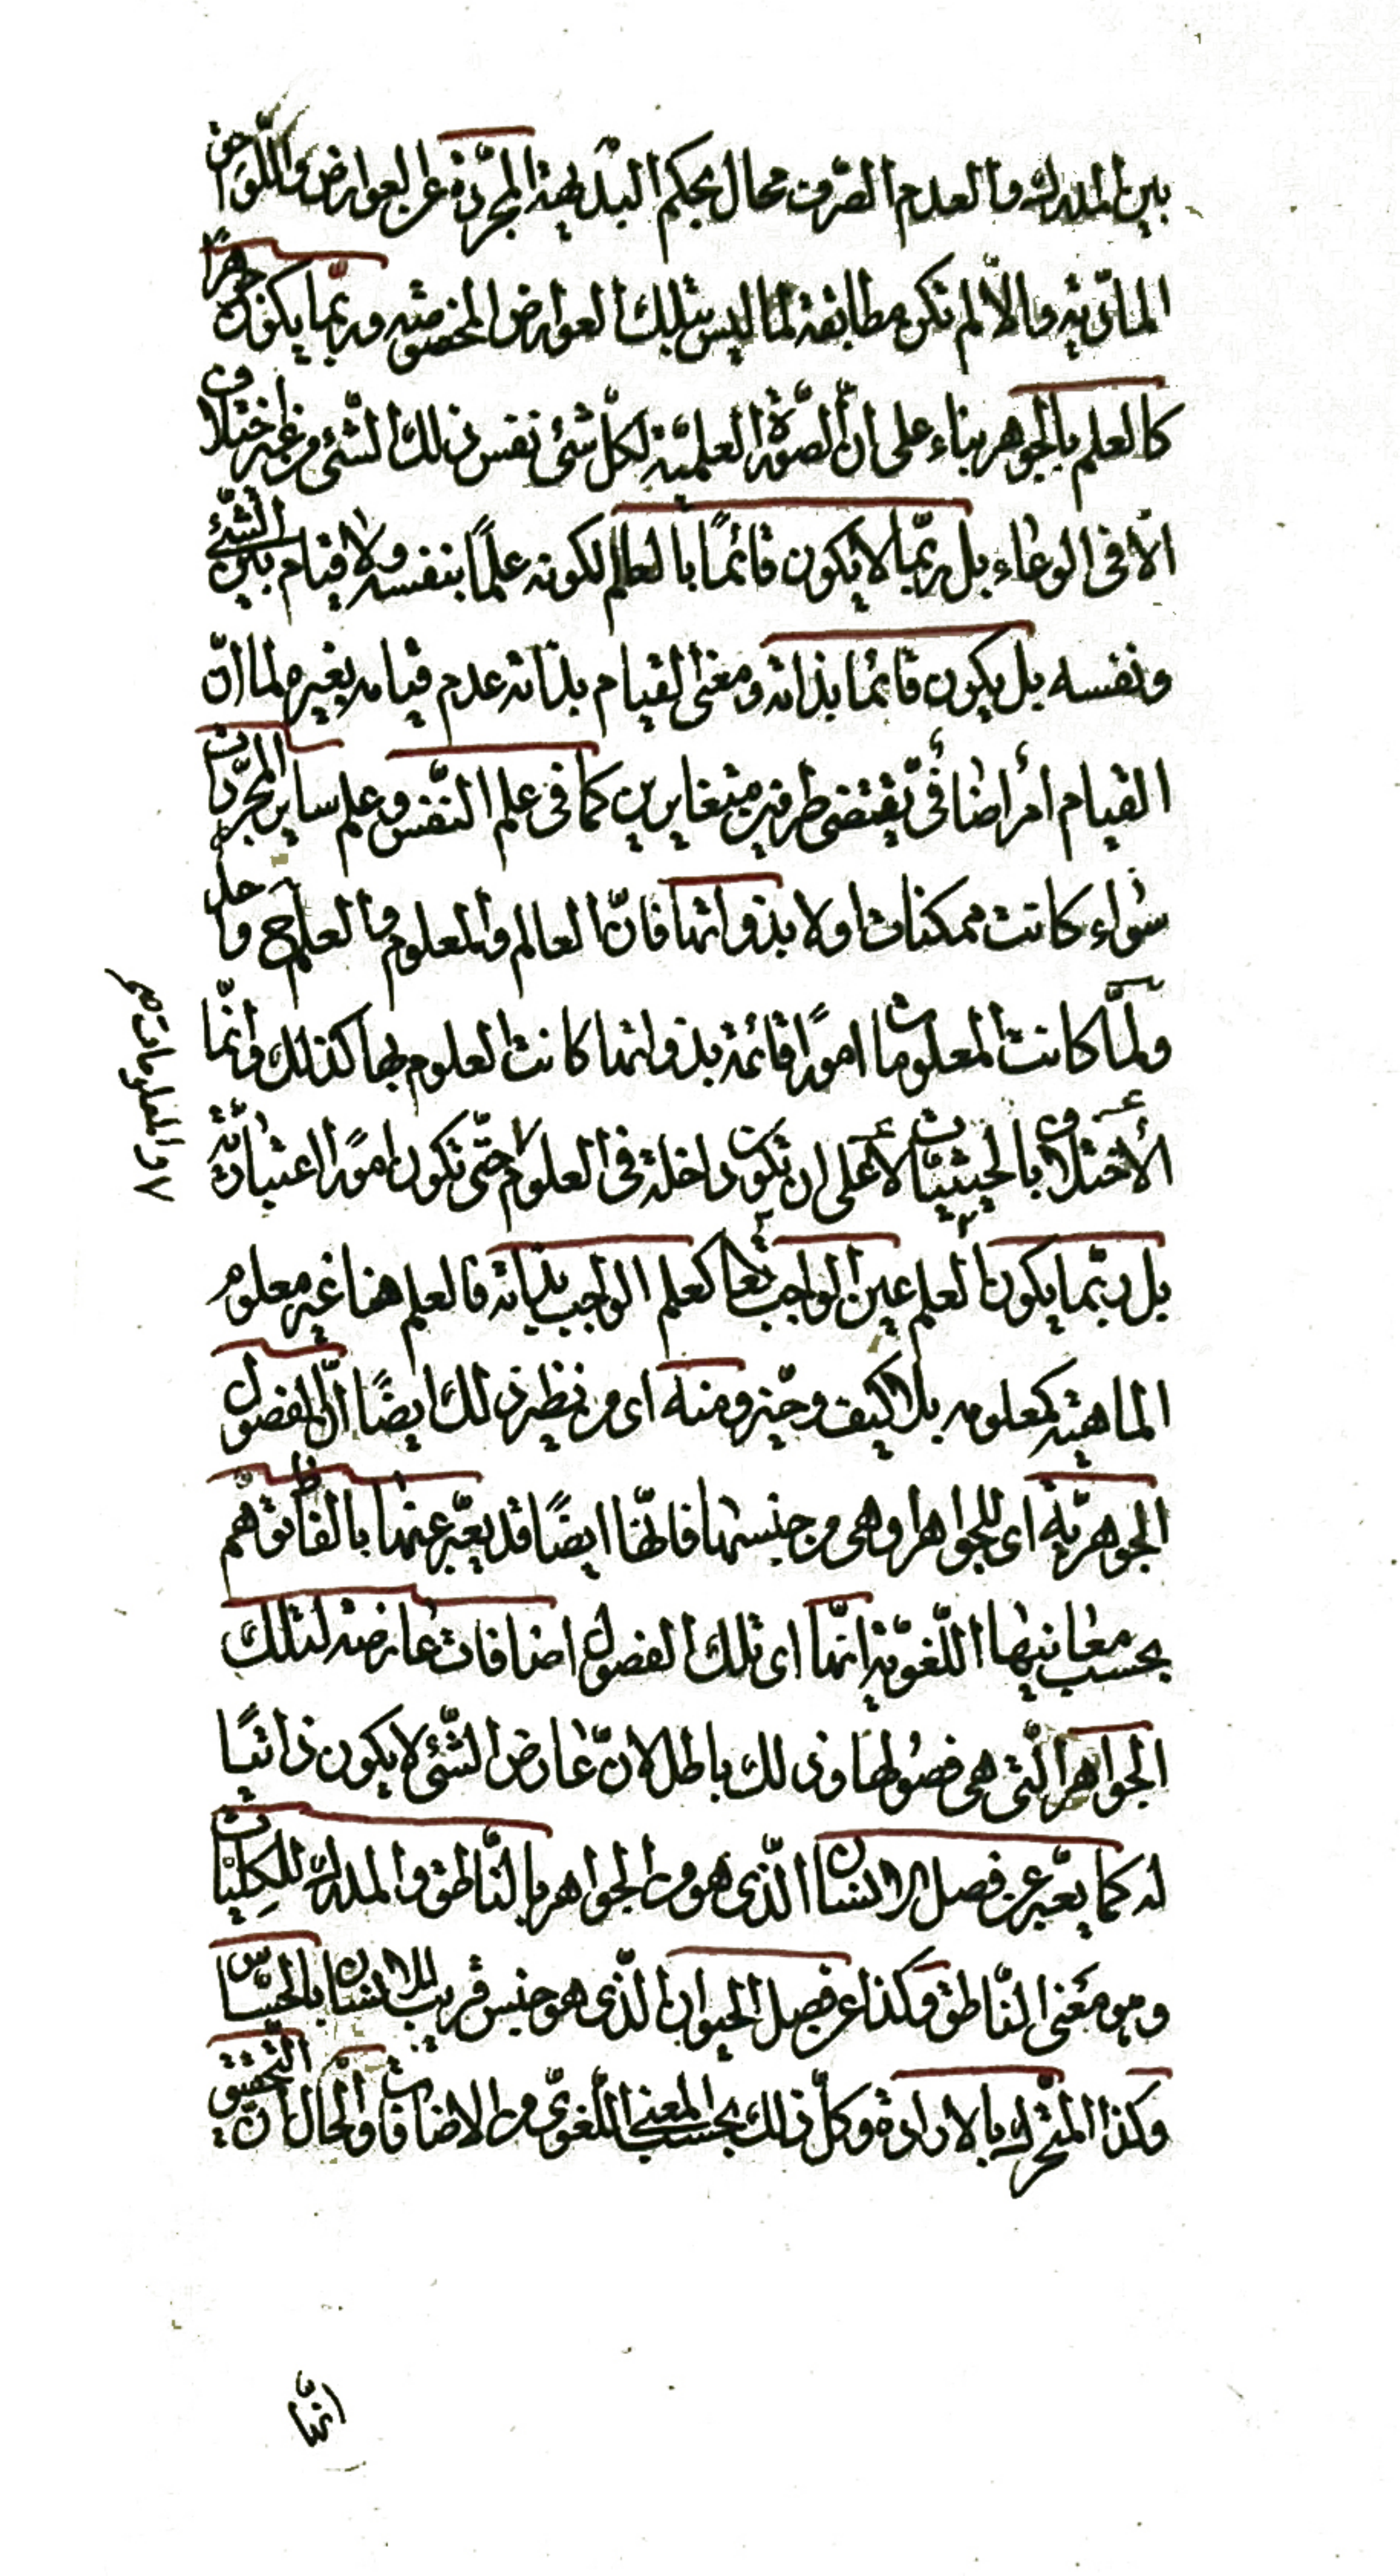 بين المدرك والعدم الصّرف محال بحكم البديهة المجرّدة عن العوارض واللّواحق
المادّيّة والّا لم تكن مطابقة لما ليس بتلك العوارض المخصّصة وربّما يكون جوهرًا
كالعلم بالجواهر بناء على انّ الصّورة العلميّة لكلّ شئ نفس ذلك الشّئ من غير اختلاف
الّا فى الوعاء بل ربّما لا يكون قائمًا بالعالم لكونه علمًا بنفسه ولا قيام بين الشّئ
ونفسه بل يكون قائما بذاته ومعنى القيام بذاته عدم قيامه بغيره لما انّ
القيام أمر اضافىّ يقتضى طرفين متغايرين كما فى علم النّفس وعلم ساير المجرّدات
سواء كانت ممكنات اولا بذواتها فانّ العالم والمعلوم والعلم ح واحد
ولمّا كانت المعلومات امورًا قائمة بذواتها كانت العلوم بها كذلك وانّما
الأختلاف بالحيثيّات لا على ان تكون داخلة فى العلوم حتّى تكون امورًا اعتباريّة
بل ربّما يكون العلم عين الواجب تعا كعلم الواجب بذاته فالعلم هنا غير معلوم
الماهيّة كمعلومه بلا كيف وحيّز ومنه اى من نظير ذلك ايضًا انّ الفصول
الجوهريّة اى للجواهر وهى من جنسها فانّها ايضًا قد يعبّر عنها بالفاظ توهّم
بحسب معانيها اللّغويّة انّها اى تلك الفصول اضافات عارضة لتلك
الجواهر الّتى هى فصولها وذلك باطل لانّ عارض الشّئ لا يكون ذاتيّا
له كما يعبّر عن فصل الانسان الّذى هو من الجواهر بالنّاطق والمدرك للكليّات
وهو معنى النّاطق وكذا عن فصل الحيوان الّذى هو جنس قريب للانسان بالحسّاس
وكذا المتحرّك بالارادة وكلّ ذلك بحسب المعنى اللّغوىّ من الاضافات والحال انّ التّحقيق
والمعلومات صح
انّها